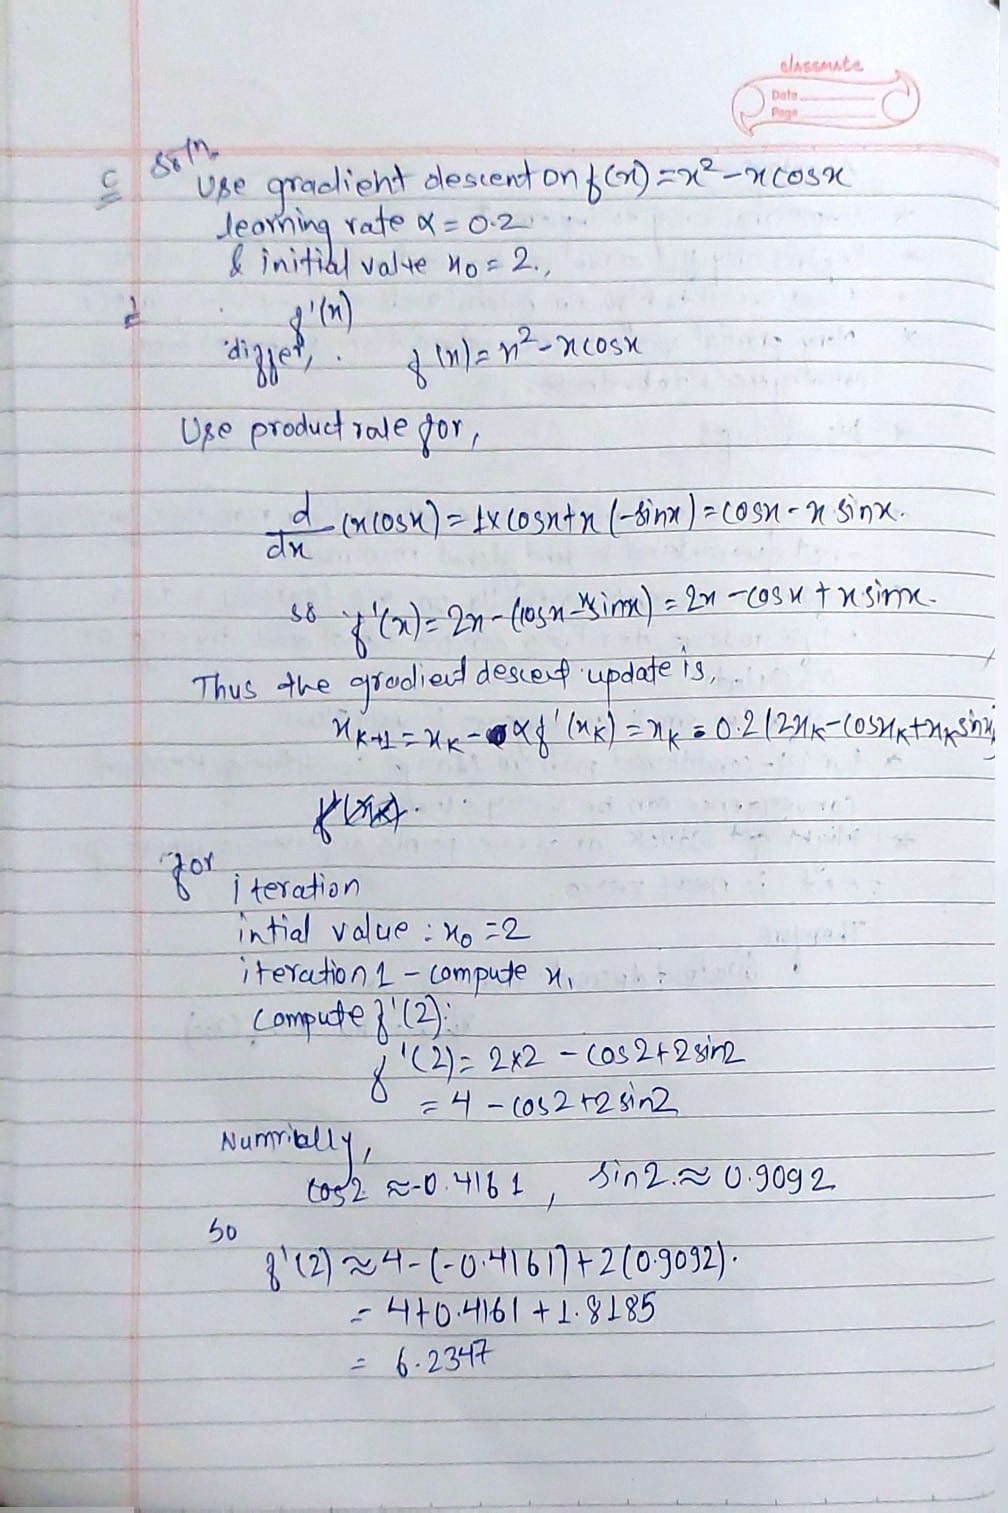 classmate
Date
Page
C
Soln
Use gradient descent on f(x) = x² - x cosx
learning rate α = 0.2
& initial value x₀ = 2.,
1
f'(x)
differ, . f(x) = x² - x cosx
Use product rale for,
d/dx (x cosx) = 1x cosx + x (-sinx) = cosx - x sinx.
so f'(x) = 2x - (cosx - x sinx) = 2x - cosx + x sinx.
Thus the gradient descent update is,
xₖ₊₁ = xₖ - α f'(xₖ) = xₖ = 0.2 (2xₖ - cosxₖ + xₖ sinxₖ
for
iteration
intial value : x₀ = 2
iteration 1 - compute x₁
compute f'(2):
f'(2) = 2x2 - cos2 + 2 sin2
= 4 - cos2 + 2 sin2
cos2 ≈ -0.4161 , sin2. ≈ 0.9092
so
f'(2) ≈ 4 - (-0.4161) + 2(0.9092).
= 4 + 0.4161 + 1.8185
= 6.2347